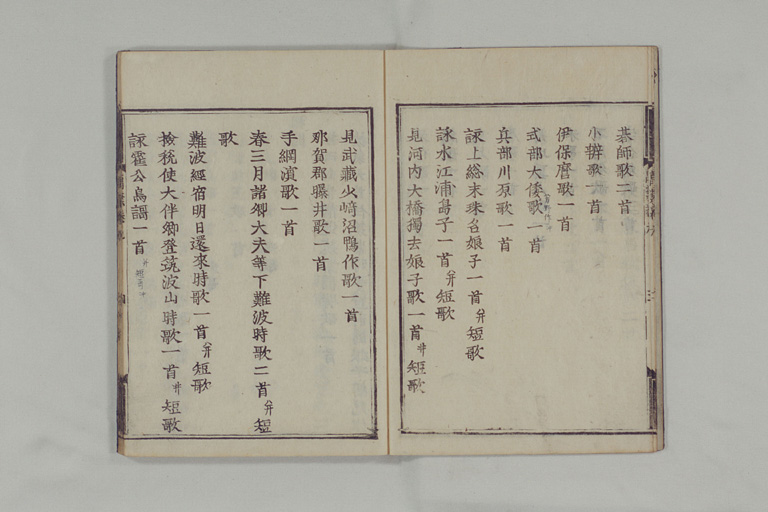 碁師歌二首
小辨歌一首
伊保麿歌一首
式部大倭歌一首
兵部川原歌一首
詠上総末珠名娘子一首 并短歌
詠水江浦島子一首 并短歌
見河内大橋獨去娘子歌一首 并短歌
見武藏小﨑沼鴨作歌一首
那賀郡曝井歌一首
手綱濱歌一首
春三月諸卿大夫等下難波時歌二首 并短
歌
難波經宿明日還來時歌一首 并短歌
撿税使大伴卿登筑波山時歌一首 并短歌
詠霍公鳥謌一首 并短哥